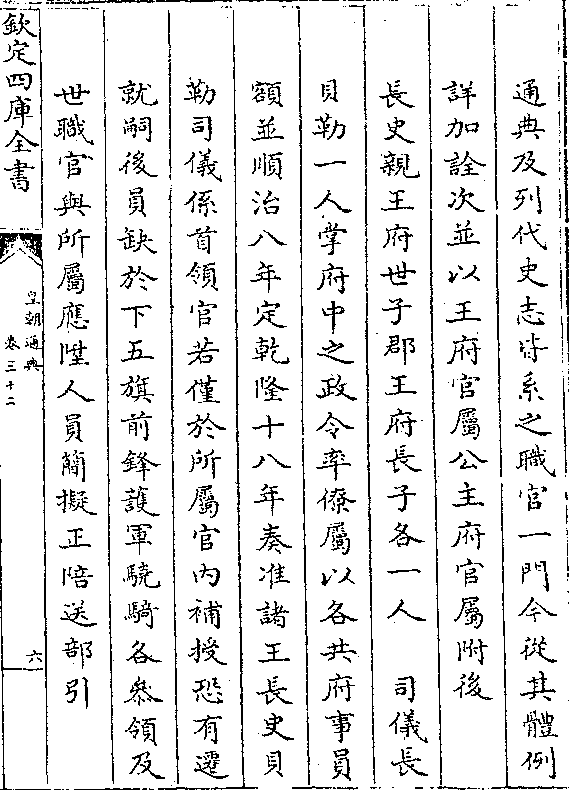 通典及列代史志皆系之職官一門今從其體例
詳加詮次並以王府官屬公主府官屬附後
長史親王府世子郡王府長子各一人　司儀長
貝勒一人掌府中之政令率僚屬以各共府事員
額並順治八年定乾隆十八年奏准諸王長史貝
勒司儀係首領官若僅於所屬官內補授恐有遷
就嗣後員缺於下五旗前鋒護軍驍騎各叅領及
世職官與所屬應陞人員簡擬正陪送部引
欽定四庫全書
皇朝通典
卷三十二
六